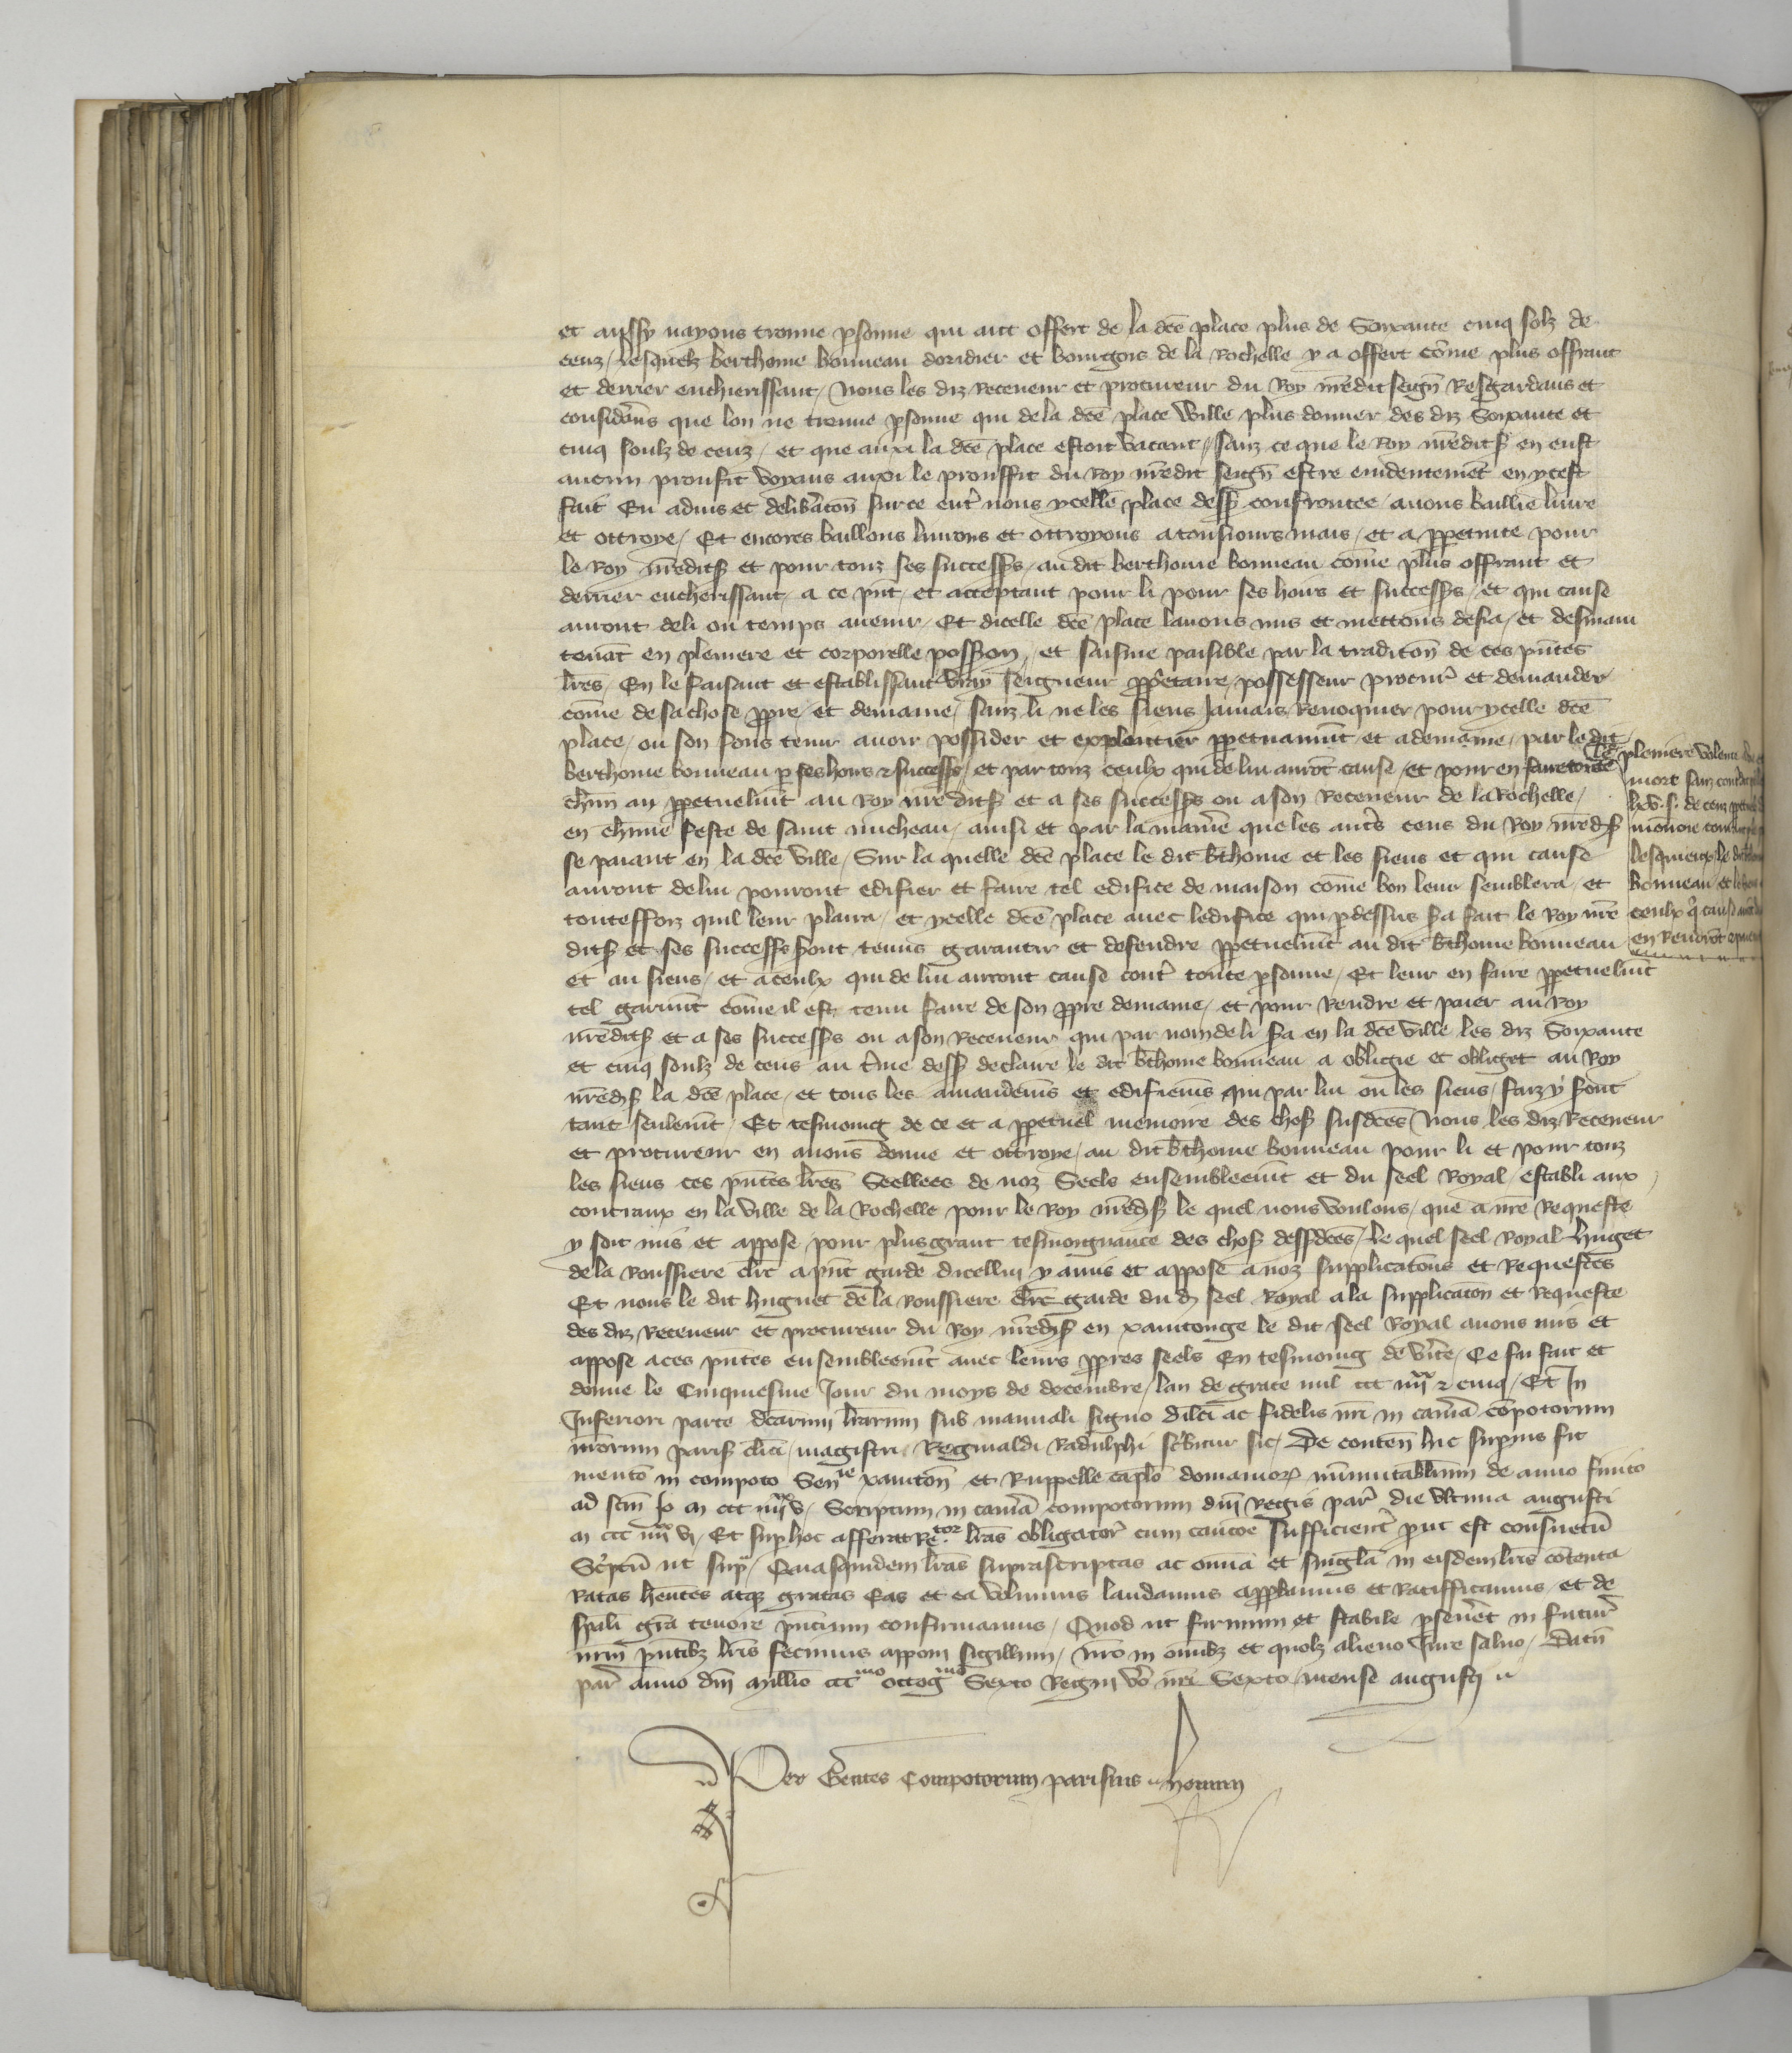 et aussy nayons trouue psonne qui ait offert de la dcē place plus de Soixante cinq solz de
cenz / lesquelz berthome bonneau doridier et bourgois de la Rochelle y a offert cōme plus offrant
et derrier encherissant / Nous les diz Receueur et procureur du Roy nr̄edit seign̄ Resgardans et
consider̄ns que lon ne treuue psonne qui de la dcē place vuille plus donner des diz Soixante et
cinq soulz de cenz / et que auxi la dcē place estoit vacant / sanz ce que le Roy nr̄edits en eust
aucun proufit voyans auxi le prouffit du Roy nr̄edit seign̄ estre euidentemēt en ycest
fait Eu aduis et delib̄acon̄ sur ce entr̄ nous ycelle place dess confrontee / auons baillie liure
et ottroye / Et encores baillons liurons et ottroyons a tousiours mais / et a ppetuite pour
le Roy nr̄edits et pour touz ses successs / au dit berthome bonneau cōme plus offrant et
derrier encherissant / a ce pn̄t / et acceptant pour li pour ses hoirs et successs / et qui cause
auront de li ou temps auenir / Et dicelle dcē place lauons mis et mettons desia / et desmain
tenāt en pleniere et corporelle possion / et saisine paisible par la traditon̄ de ces pn̄tes
lr̄es / En le faisant et establissant vray seigneur pp̄etaire / possesseur procur̄ et demander
cōme de sa chose ppre / et demaine / sanz li ne les siens Jamais Reuoquier pour ycelle dcē
place / ou son fons tenir auoir possider et exploutier ppetuaumt̄ / et ademaine / par le dit
berthome bonneau p ses hoirs & successs / et par touz ceulx qui de lui aurōt cause / et pour en faire toute
pleniere volente
mort sanz
lxv. s. de cenz
memoire
lesquiex le dit
Bonneau et
ceulx q̄ cause
en Rendrōt
chūn an ppetuelmt̄ au Roy nr̄e dits et a ses successs ou a son Receueur de la Rochelle /
en chūne feste de saint micheau / ainsi et par la manie̊ que les autr̄s cens du Roy nr̄eds
se paiant en la dcē ville / Sur la quelle dcē place le dit b̄thome et les siens et qui cause
auront de lui pouront edifier et faire tel edifice de maison cōme bon leur semblera / et
touteffoiz quil leur plaira / et ycelle dcē place auec ledifice qui p dessus s̄a fait le Roy nr̄e
dits et ses successs sont tenus garantir et defendre ppetuelmt̄ au dit b̄thome bonneau
et au siens / et a ceulx qui de lui auront cause contr̄ toute psonne / Et leur en faire ppetuelmt̄
tel garimt̄ cōme il est tenu faire de son ppre demaine / et pour Rendre et paier au Roy
nr̄edits et a ses successs ou a son Receueur qui par nom de li s̄a en la dcē ville les diz Soixante
et cinq soulz de cens au t̄me dess declaire le dit b̄thome bonneau a obligie et obliget au Roy
nr̄eds la dcē place / et tous les amandemn̄s et edifiemn̄s qui par lui ou les siens / faiz y s̄ont
tant seulemt̄ / Et tesmoing de ce et a ppetuel memoire des chos susdcēs Nous les diz Receueur
et procureur en auons donne et ottroye / au dit b̄thome bonneau pour li et pour touz
les siens ces pn̄tes lr̄es Seellees de noz Seels ensembleemt̄ et du seel Royal / establi aux
contraux en la ville de la Rochelle pour le Roy nr̄eds le quel nous voulons / que a nr̄e Requeste
y soit mis et appose pour plus grant tesmongnance des chos dessdcēs / le quel seel Royal Huget
de la Roussiere cler̄c apn̄t garde dicellui y a mis et appose a noz supplicatons et Requestes
Et nous le dit huguet de la Roussiere cler̄c garde du d. seel Royal a la supplicaton et Requeste
des diz Receueur et procureur du Roy nr̄eds en xaintonge le dit seel Royal auons mis et
appose a ces pn̄tes ensembleemt̄ auec leurs ppres seels En tesmoing de vr̄ite / Ce fu fait et
donne le Cinquiesme Jour du moys de decembre / lan de grace mil ccc iiijxx & cinq / Et In
Inferiori parte dcarum lr̄arum sub manuali signo dilc̄i ac fidelis nr̄i in camā cōpotorum
nr̄orum paris clici / magistri Reginaldi Radulphi sc̄bitur sic / De conten̄ hic supius fit
mentō in compoto Sen̄ie xanton̄ et Ruppelle caplo domanior̄ nn̄mutablium de anno finito
ad scm̄ Jo m ccc iiijxx v / Scriptum in camā compotorum dn̄i Regis par̄ die vltima augusti
m ccc iiijxx vj / Et sup hoc afferat Re.tor lr̄as obligator̄ cum caucoe sufficient̄ put est consuetū
Sc̄ptū ut sup̄ / Quasquidem lr̄as suprascriptas ac om̄ia et singla in eisdem lr̄is cōtenta
Ratas hēntes atq̄ gratas Eas et ea volumus laudamus app̄bamus et Ratifficamus / et de
sp̄ali gr̄a tenore pn̄cium confirmamus / Quod ut firmum et stabile pseuēt in futur̄
nr̄m pn̄tibz lr̄is fecimus apponi sigillum / Nr̄o in om̄ibz et quolz alieno Jure saluo / Datū
par̄ anno dn̄i Millio cccmo octogmo Sexto Regni vo nr̄i Sexto / mense augusti
Per Gentes Compotorum parisius